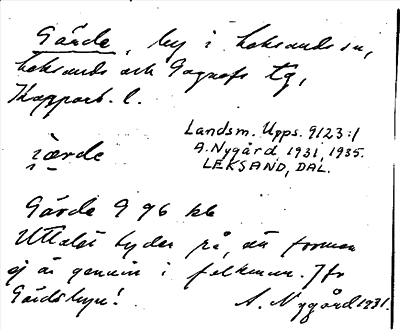 Gärde, by i Leksands sn,
Leksands och Gagnefs tg,
Kopparb. l.
Landsm. Upps. 9123:1
A. Nygård 1931, 1935.
LEKSAND, DAL.
järde
Gärde 9 96 kb
Uttalet tyder på, att formen
ej är genuin i folkmun. Jfr
Gärdsbyn!
A. Nygård 1931.